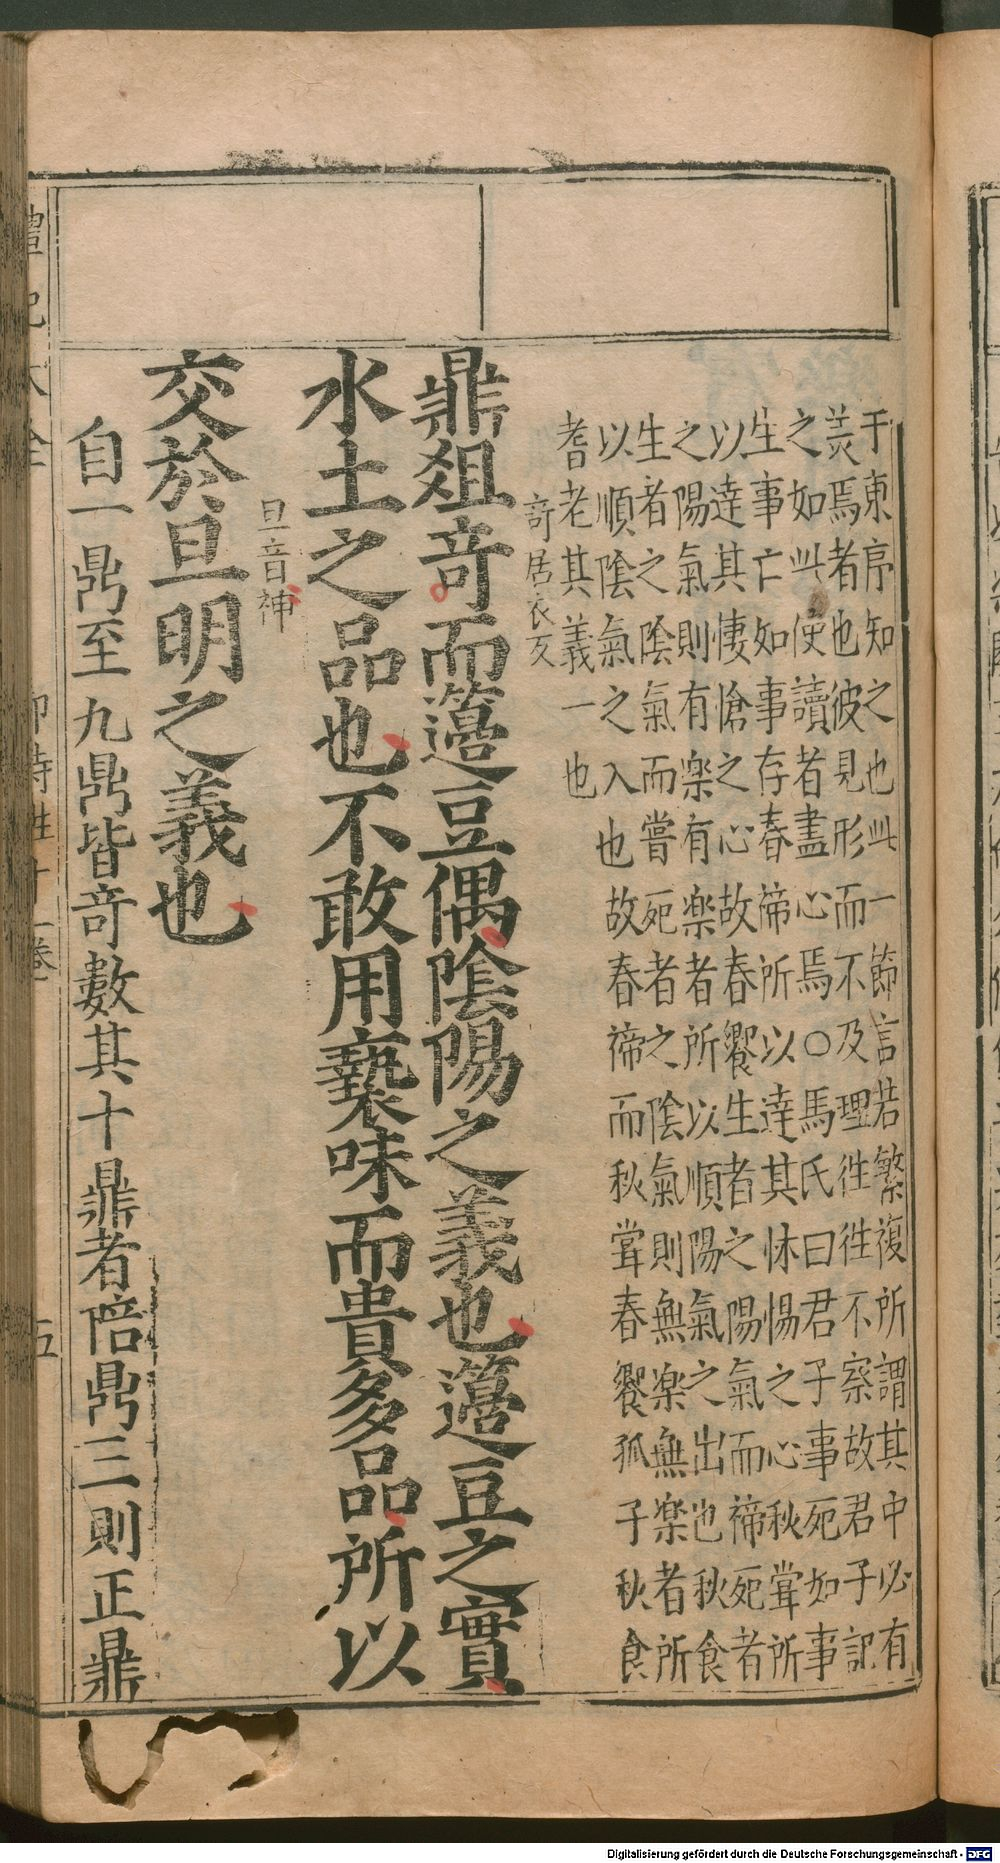 于東序知之也此一節言若繁複所謂其中必有
焉者也彼見形而不及理徃徃不察故君子記
之如此使讀者盡心焉○馬氏曰君子事死如事
生事亡如事存春禘所以達其怵惕之心秋甞所
以達其悽愴之心故春饗生者之陽氣而禘死者
之陽氣則有楽有楽者所以順陽氣之出也秋食
生者之陰氣而嘗死者之陰氣則無楽無楽者所
以順陰氣之入也故春禘而秋甞春饗孤子秋食
耆老其義一也
竒居衣反
鼎俎竒而籩豆偶陰陽之義也籩豆之實
水土之品也不敢用褻味而貴多品所以
旦音神
交於旦明之義也
自一鼎至九鼎皆竒數其十鼎者陪鼎三則正鼎
禮記大全
郊特牲十一卷
五
Digitalisierung gefördert durch die Deutsche Forschungsgemeinschaft - DFG